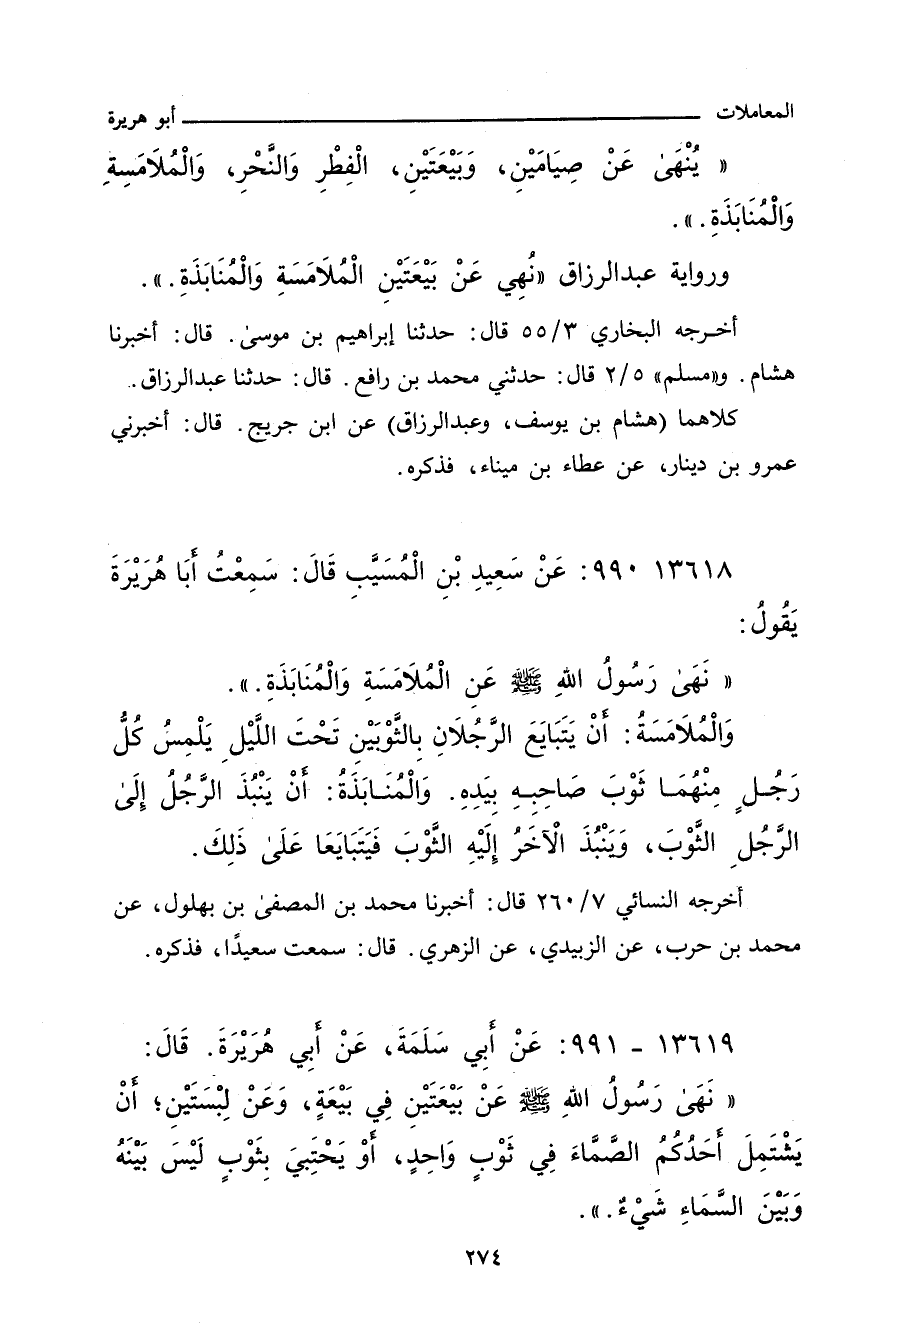 المعاملات ــــــــــــــــ أبو هريرة
« يُنْهَىٰ عَنْ صِيَامَيْنِ، وَبَيْعَتَيْنِ، الْفِطْرِ وَالنَّحْرِ، وَالْمُلَامَسِةِ
وَالْمُنَابَذَةِ . ».
ورواية عبدالرزاق «نُهِي عَنْ بَيْعَتَيْنِ الْمُلَامَسَةِ وَالْمُنَابَذَةِ . ».
أخـرجه البخاري ٥٥/٣ قال: حدثنا إبراهيم بن موسىٰ. قال: أخبرنا
هشام. و«مسلم» ٢/٥ قال: حدثني محمد بن رافع. قال: حدثنا عبدالرزاق.
كلاهما (هشام بن يوسف، وعبدالرزاق) عن ابن جريج. قال: أخبرني
عمرو بن دينار، عن عطاء بن ميناء، فذكره.
١٣٦١٨ ٩٩٠: عَنْ سَعِيدِ بْنِ الْمُسَيَّبِ قَالَ: سَمِعْتُ أَبَا هُرَيْرَةَ
يَقُولُ:
« نَهَىٰ رَسُولُ اللهِ ﷺ عَنِ الْمُلَامَسَةِ وَالْمُنَابَذَةِ . ».
وَالْمُلَامَسَةُ: أَنْ يَتَبَايَعَ الرَّجُلَانِ بِالثَّوْبَيْنِ تَحْتَ اللَّيْلِ يَلْمِسُ كُلُّ
رَجُـلٍ مِنْهُمَـا ثَوْبَ صَاحِبِهِ بِيَدِهِ. وَالْمُنَـابَذَةُ: أَنْ يَنْبُذَ الرَّجُلُ إِلَىٰ
الرَّجُلِ الثَّوْبَ، وَيَنْبُذَ الْآخَرُ إِلَيْهِ الثَّوْبَ فَيَتَبَايَعَا عَلَىٰ ذَلِكَ.
أخرجه النسائي ٢٦٠/٧ قال: أخبرنا محمد بن المصفىٰ بن بهلول، عن
محمد بن حرب، عن الزبيدي، عن الزهري. قال: سمعت سعيدًا، فذكره.
١٣٦١٩ - ٩٩١: عَنْ أَبِي سَلَمَةَ، عَنْ أَبِي هُرَيْرَةَ. قَالَ:
« نَهَىٰ رَسُولُ اللهِ ﷺ عَنْ بَيْعَتَيْنِ فِي بَيْعَةٍ، وَعَنْ لِبْسَتَيْنِ؛ أَنْ
يَشْتَمِلَ أَحَدُكُمُ الصَّمَّاءَ فِي ثَوْبٍ وَاحِدٍ، أَوْ يَحْتَبِيَ بِثَوْبٍ لَيْسَ بَيْنَهُ
وَبَيْنَ السَّمَاءِ شَيْءٌ . ».
٢٧٤